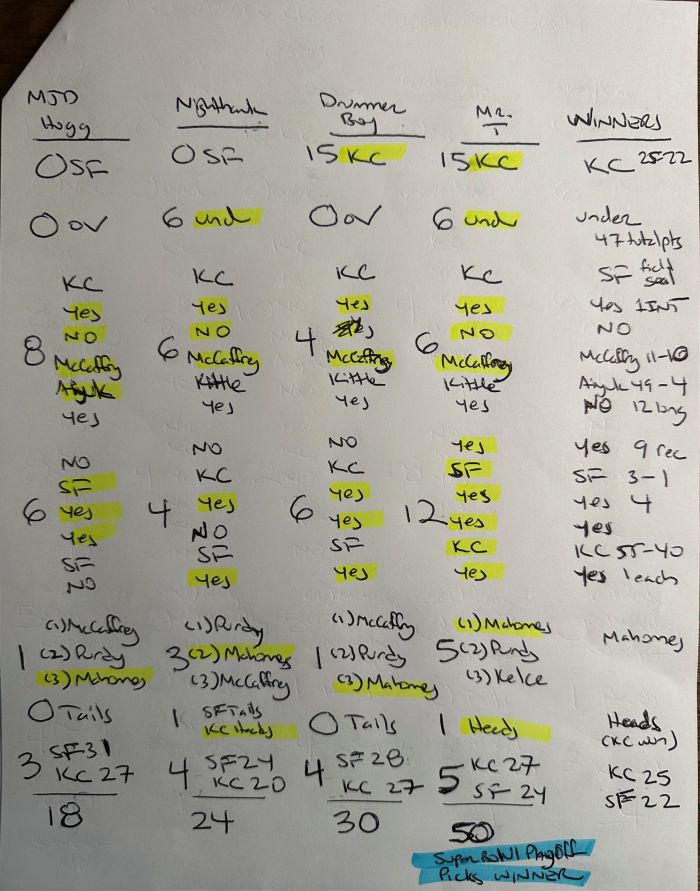 MJD Hogg Nighthawk Drummer Boy Mr. T WINNERS
0 SF 0 SF 15 KC 15 KC KC 25-22
0 OV 6 und 0 OV 6 und under
47 total pts
KC KC KC KC SF field goal
Yes Yes Yes Yes Yes 1 INT
8 NO 6 NO 4 6 NO NO
McCaffrey McCaffrey McCaffrey McCaffrey McCaffrey 11-10
Aiyuk Kittle Kittle Kittle Aiyuk 49-4
Yes Yes Yes Yes NO 12 long
NO NO NO Yes Yes 9 rec
SF KC KC SF SF 3-1
6 Yes 4 Yes 6 Yes 12 Yes Yes 4
Yes NO Yes Yes Yes
SF SF SF KC KC 55-40
NO Yes Yes Yes Yes 1 each
(1) McCaffrey (1) Purdy (1) McCaffrey (1) Mahomes Mahomes
1 (2) Purdy 3 (2) Mahomes 1 (2) Purdy 5 (2) Purdy
(3) Mahomes (3) McCaffrey (3) Mahomes (3) Kelce
0 Tails 1 SF Tails 0 Tails 1 Heads Heads
KC Heads (KC win)
3 SF 31 4 SF 24 4 SF 28 5 KC 27 KC 25
KC 27 KC 20 KC 27 SF 24 SF 22
18 24 30 50
Super Bowl Playoff
Picks WINNER